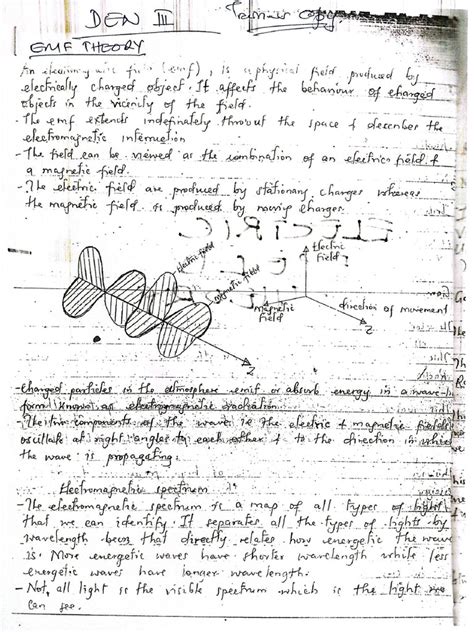 DEN III
EMF THEORY
An (emf), is a physical field produced by
electrically charged object. It affects the behaviour of charged
objects in the vicinity of the field.
- The emf extends indefinately throut the space & describes the
electromagnetic
- The field can be viewed as the combination of an electric field &
a magnetic field.
- The electric field are produced by stationary charges whereas
the magnetic field is produced by moving charges.
Electric
field
electric field
magnetic field
magnetic
field
direction of movement
Z
Z
- Charged particles in the atmosphere emit or absorb energy in a wave-
form known as electromagnetic radiation.
- The two components of the wave ie the electric & magnetic fields
oscillate at right angles to each other & to the direction in which
the wave is propagating.
Electromagnetic spectrum
- The electromagnetic spectrum is a map of all types of light
that we can identify. It separates all the types of lights by
wavelength that directly relates how energetic the wave
is. More energetic waves have shorter wavelength while less
energetic waves have longer wavelength.
- Not all light is the visible spectrum which is the light we
can see.